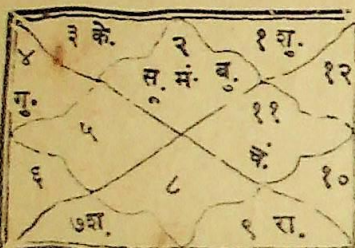 ३ के. २ १ शु.
४ सू. मं. बु. १२
गु. ११
५ चं.
६ ८ १०
७ श. ९ रा.